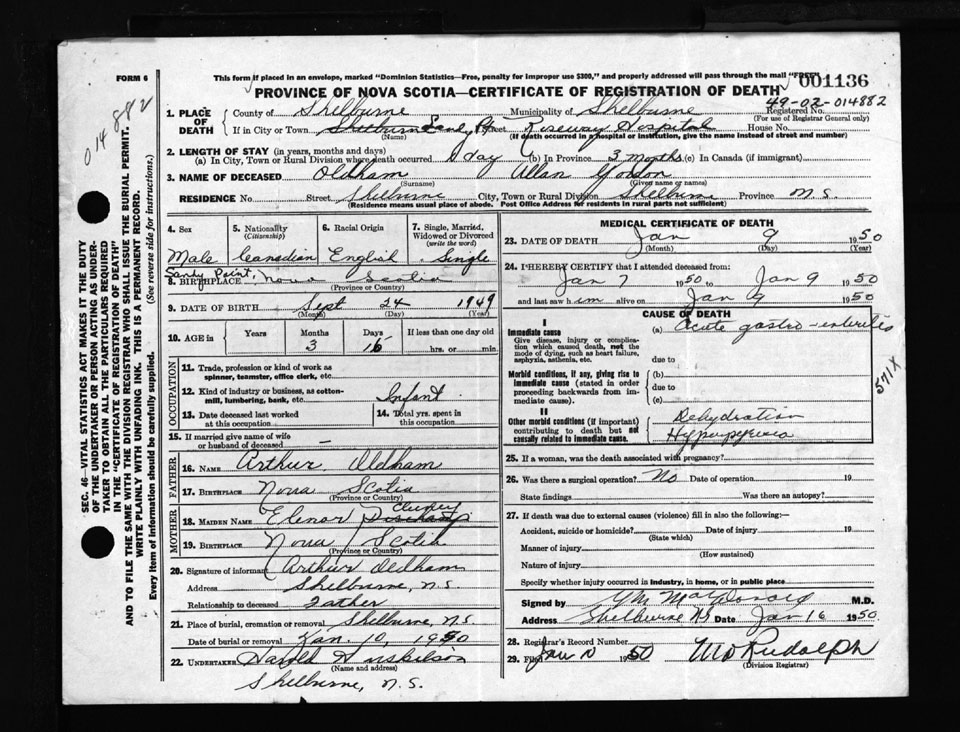 FORM 6
This form if placed in an envelope, marked "Dominion Statistics—Free, penalty for improper use $300," and properly addressed will pass through the mail "FREE"
001136
PROVINCE OF NOVA SCOTIA—CERTIFICATE OF REGISTRATION OF DEATH
49-02-014882
014882
SEC. 46—VITAL STATISTICS ACT MAKES IT THE DUTY
OF THE UNDERTAKER OR PERSON ACTING AS UNDER-
TAKER TO OBTAIN ALL THE PARTICULARS REQUIRED
IN THE "CERTIFICATE OF REGISTRATION OF DEATH"
AND TO FILE THE SAME WITH THE DIVISION REGISTRAR WHO SHALL ISSUE THE BURIAL PERMIT.
WRITE PLAINLY WITH UNFADING INK. THIS IS A PERMANENT RECORD.
Every item of information should be carefully supplied. (See reverse side for instructions.)
1. PLACE OF DEATH County of Shelburne Municipality of Shelburne Registered No.
(For use of Registrar General only)
If in City or Town Street Roseway Hospital House No.
(Name) (If death occurred in a hospital or institution, give the name instead of street and number)
2. LENGTH OF STAY (in years, months and days)
(a) In City, Town or Rural Division where death occurred 1 day (b) In Province 3 months (c) In Canada (if immigrant)
3. NAME OF DECEASED Oldham Allan Gordon
(Surname) (Given name or names)
RESIDENCE No. Street Shelburne City, Town or Rural Division Shelburne Province N.S.
(Residence means usual place of abode. Post Office Address for residents in rural parts not sufficient)
4. Sex Male
5. Nationality (Citizenship) Canadian
6. Racial Origin English
7. Single, Married, Widowed or Divorced (write the word) Single
8. BIRTHPLACE Sandy Point, Nova Scotia
(Province or Country)
9. DATE OF BIRTH Sept 24 1949
(Month) (Day) (Year)
10. AGE in Years Months 3 Days 16 If less than one day old hrs. or min.
OCCUPATION
11. Trade, profession or kind of work as spinner, teamster, office clerk, etc.
12. Kind of industry or business, as cotton-mill, lumbering, bank, etc. Infant
13. Date deceased last worked at this occupation
14. Total yrs. spent in this occupation
15. If married give name of wife or husband of deceased —
FATHER
16. NAME Arthur Oldham
17. BIRTHPLACE Nova Scotia
(Province or Country)
MOTHER
18. MAIDEN NAME Elenor
19. BIRTHPLACE Nova Scotia
(Province or Country)
20. Signature of informant Arthur Oldham
Address Shelburne, N.S.
Relationship to deceased Father
21. Place of burial, cremation or removal Shelburne, N.S.
Date of burial or removal Jan. 10, 1950
22. UNDERTAKER Harold
(Name and address)
Shelburne, N.S.
MEDICAL CERTIFICATE OF DEATH
23. DATE OF DEATH Jan 9 1950
(Month) (Day) (Year)
24. I HEREBY CERTIFY that I attended deceased from:
Jan 7 1950 to Jan 9 1950
and last saw him alive on Jan 9 1950
CAUSE OF DEATH
I
Immediate cause
Give disease, injury or complication which caused death, not the mode of dying, such as heart failure, asphyxia, asthenia, etc.
(a) Acute gastro-enteritis
due to
Morbid conditions, if any, giving rise to immediate cause (stated in order proceeding backwards from immediate cause).
(b)
due to
(c)
571X
II
Other morbid conditions (if important) contributing to death but not causally related to immediate cause.
Dehydration
Hyperpyrexia
25. If a woman, was the death associated with pregnancy?
26. Was there a surgical operation? No Date of operation 19
State findings Was there an autopsy?
27. If death was due to external causes (violence) fill in also the following:—
Accident, suicide or homicide? Date of injury 19
(State which)
Manner of injury
(How sustained)
Nature of injury
Specify whether injury occurred in industry, in home, or in public place
Signed by M.D.
Address Shelburne NS Date Jan 16 1950
28. Registrar's Record Number
29. Filed Jan 10 1950 Rudolph
(Division Registrar)